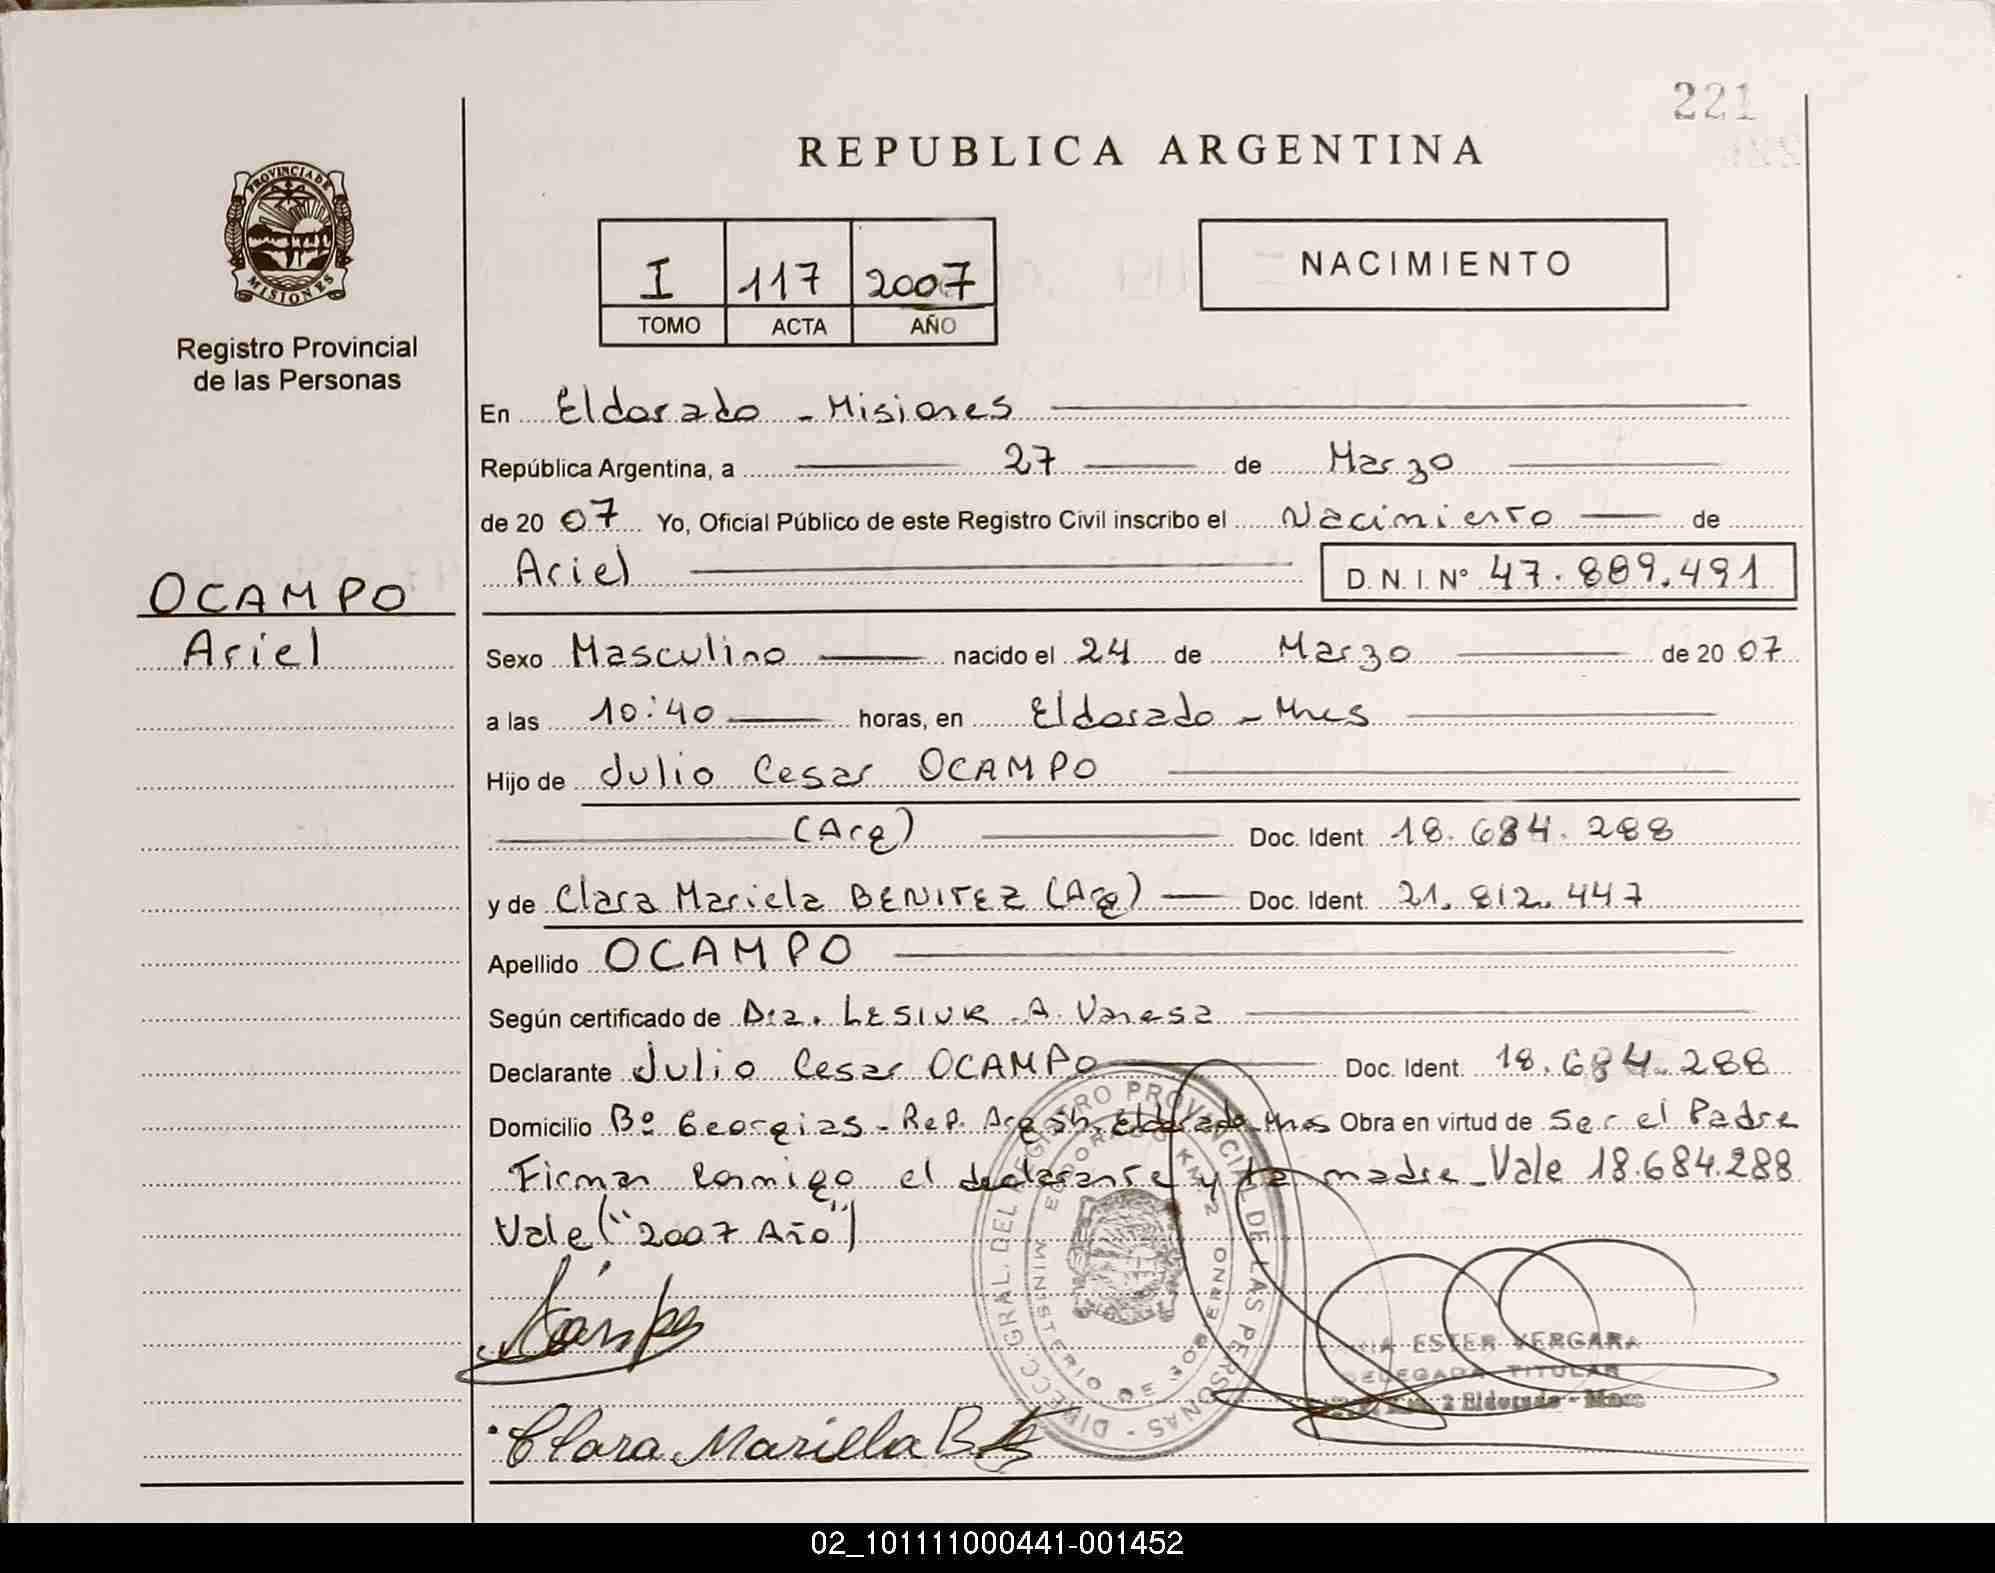 221
REPUBLICA ARGENTINA
PROVINCIA DE
MISIONES
Registro Provincial
de las Personas
I 117 2007
TOMO ACTA AÑO
NACIMIENTO
En Eldorado - Misiones
República Argentina, a 27 de Marzo
de 20 07 Yo, Oficial Público de este Registro Civil inscribo el Nacimiento de
Ariel D.N.I. N° 47.889.491
OCAMPO
Ariel
Sexo Masculino nacido el 24 de Marzo de 20 07
a las 10:40 horas, en Eldorado - Mnes
Hijo de Julio Cesar OCAMPO
(Arg) Doc. Ident. 18.684.288
y de Clara Mariela BENITEZ (Arg) Doc. Ident. 21.812.447
Apellido OCAMPO
Según certificado de Dra. LESIUK A. Vanesa
Declarante Julio Cesar OCAMPO Doc. Ident. 18.684.288
Domicilio Bº Georgias - Rep. Arg Sn. Eldorado - Mnes Obra en virtud de Ser el Padre
Firman conmigo el declarante y la madre - Vale 18.684.288
Vale ("2007 Año")
DIRECC. GRAL. DEL REGISTRO PROVINCIAL DE LAS PERSONAS
ELDORADO KM. 2
MINISTERIO DE GOBIERNO
ESTER VERGARA
DELEGADA TITULAR
2 Eldorado - Mnes
Clara Mariella B
02_101111000441-001452